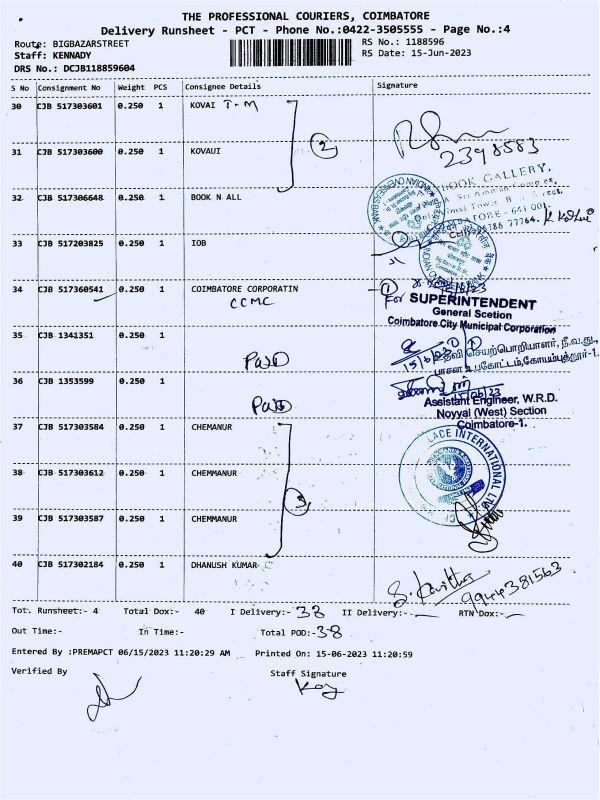 THE PROFESSIONAL COURIERS, COIMBATORE
Delivery Runsheet - PCT - Phone No.:0422-3505555 - Page No.:4
Route: BIGBAZARSTREET RS No.: 1188596
Staff: KENNADY RS Date: 15-Jun-2023
DRS No.: DCJB118859604
S No Consignment No Weight PCS Consignee Details Signature
30 CJB 517303601 0.250 1 KOVAI T-M
2
31 CJB 517303600 0.250 1 KOVAUI 2398583
BOOK GALLERY,
32 CJB 517306648 0.250 1 BOOK N ALL
COIMBATORE - 641 001.
33 CJB 517203825 0.250 1 IOB
INDIAN OVERSEAS BANK
34 CJB 517360541 0.250 1 COIMBATORE CORPORATIN
CCMC
1
For SUPERINTENDENT
General Scetion
Coimbatore City Municipal Corporation
35 1341351 0.250 1
Paid
15/6/23
செயற்பொறியாளர், நீ.வ.து.,
பாசன உபகோட்டம், கோயம்புத்தூர்-1.
36 1353599 0.250 1
Paid
15/06/23
Assistant Engineer, W.R.D.
Noyyal (West) Section
Coimbatore-1.
37 CJB 517303584 0.250 1 CHEMANUR
38 CJB 517303612 0.250 1 CHEMMANUR
3
39 CJB 517303587 0.250 1 CHEMMANUR
40 CJB 517302184 0.250 1 DHANUSH KUMAR
S. Kavitha
9944381563
Tot. Runsheet:- 4 Total Dox:- 40 I Delivery:- 38 II Delivery:- RTN Dox:-
Out Time:- In Time:- Total POD:- 38
Entered By :PREMAPCT 06/15/2023 11:20:29 AM Printed On: 15-06-2023 11:20:59
Verified By Staff Signature